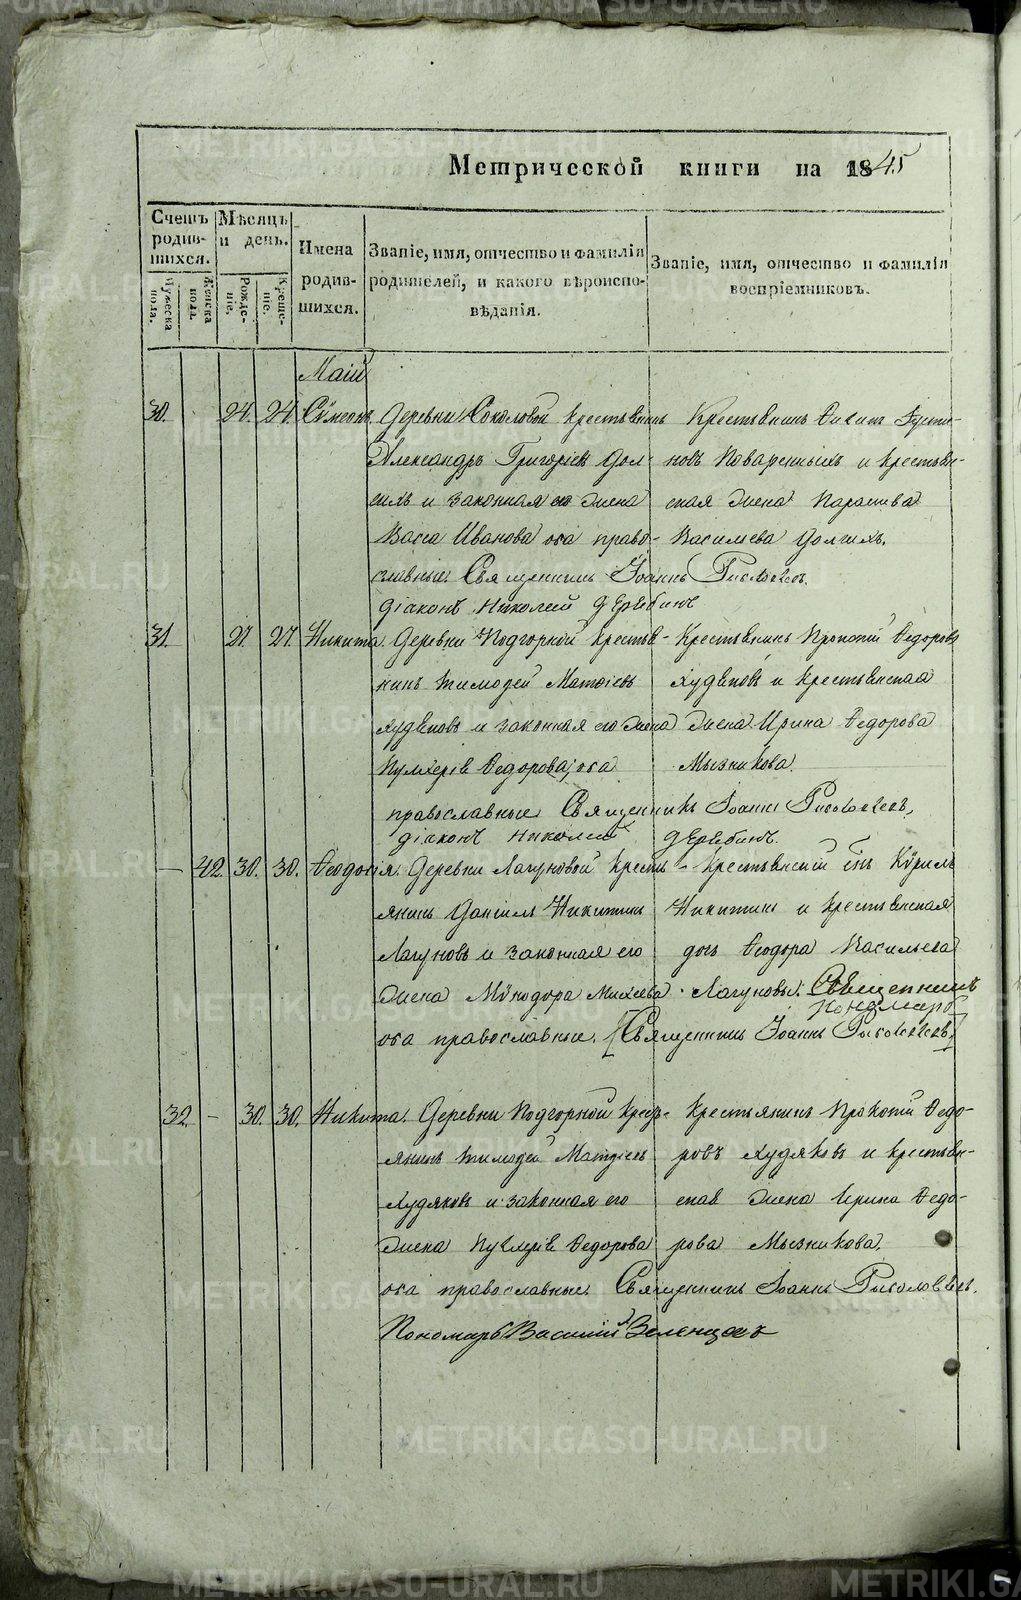 Метрической книги на 1845
Счетъ родив-шихся.
Мѣсяцъ и день.
Мужеска пола.
Женска пола.
Рожде-ніе.
Креще-ніе.
Имена родив-шихся.
Званіе, имя, отчество и фамилія родителей, и какого вѣроиспо-вѣданія.
Званіе, имя, отчество и фамилія воспріемниковъ.
Маій
30. 24. 24. Сѵмеонъ. Деревни Соколовой крестьянинъ
Александръ Григоріевъ Дол-
гихъ и законная его жена
Васса Иванова оба право-
славные. Священникъ Іоаннъ
діаконъ Николай Дерябинъ
Крестьянинъ
новъ Поваренныхъ и крестьян-
ская жена Параскева
Василиева Долгихъ.
31. 27. 27. Никита. Деревни Подгорной крестья-
нинъ Тимоѳей Матѳіевъ
Худяковъ и законная его жена
Пулхерія Ѳедорова, оба
православные. Священникъ Іоаннъ
діаконъ Николай Дерябинъ.
Крестьянинъ Прокопій Ѳедоровъ
Худяковъ и крестьянская
жена Ирина Ѳедорова
Мызникова.
— 42. 30. 30. Ѳеодосія. Деревни Лагуновой кресть-
янинъ Даніилъ Никитинъ
Лагуновъ и законная его
жена Минодора Михеева
оба православные. Священникъ Іоаннъ
Крестьянскій сынъ Кѵрилъ
Никитинъ и крестьянская
дочь Ѳеодора Васильева
Лагуновы. Священникъ
пономарь
32. – 30. 30. Никита. Деревни Подгорной крест-
янинъ Тимоѳей Матѳіевъ
Худяковъ и законная его
жена Пулхерія Ѳедорова
оба православные. Священникъ Іоаннъ
Пономарь Василій Зеленцовъ
Крестьянинъ Прокопій Ѳедо-
ровъ Худяковъ и крестьян-
ская жена Ирина Ѳедо-
рова Мызникова.
METRIKI.GASO-URAL.RU